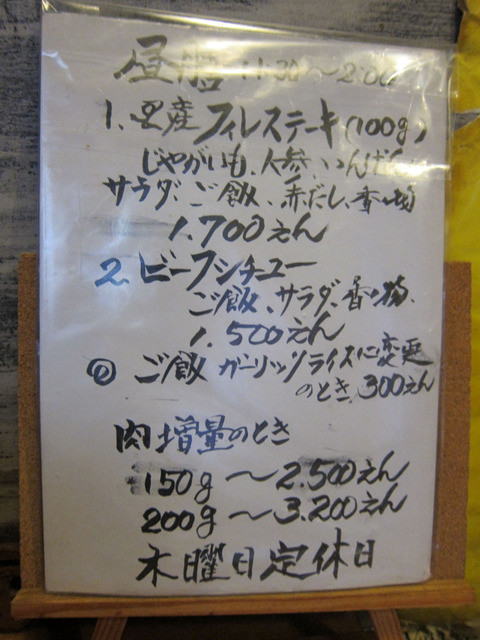 昼膳 11:30〜2:00
1、国産フィレステーキ(100g)
じゃがいも、人参、いんげん
サラダ、ご飯、赤だし、香の物
1.700えん
2、ビーフシチュー
ご飯、サラダ、香の物、
1.500えん
ご飯 ガーリックライスに変更
のとき、300えん
肉増量のとき
150g 〜2.500えん
200g 〜3.200えん
木曜日定休日